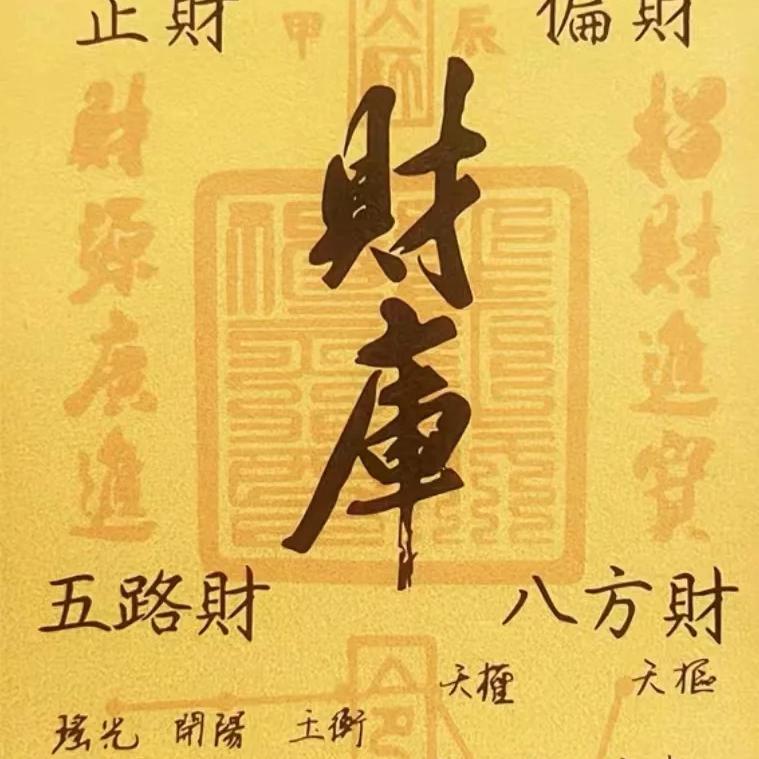 正財 偏財
甲 辰
財庫
招財進寶
財源廣進
五路財 八方財
天權 天樞
瑤光 開陽 玉衡